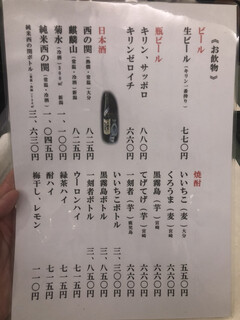 《お飲物》
ビール
生ビール(キリン一番搾り) 七七〇円
瓶ビール
キリン、サッポロ 八八〇円
キリンゼロイチ 六六〇円
日本酒
西の関 (熱燗・常温)大分 八二五円
麒麟山 (常温・冷酒)新潟 八二五円
菊水 一、一〇〇円
純米西の関 (常温・冷酒) 一、〇四五円
純米西の関ボトル 三、六三〇円
焼酎
いいちこ(麦)大分 五五〇円
くろうま(麦)宮崎 六六〇円
黒霧島(芋)宮崎 六六〇円
てげてげ(芋)宮崎 六六〇円
一刻者(芋)鹿児島 六六〇円
いいちこボトル 三、三〇〇円
黒霧島ボトル 三、八五〇円
一刻者ボトル 三、八五〇円
ウーロンハイ 七一五円
緑茶ハイ 七一五円
酎ハイ 七一五円
梅干し、レモン 一一〇円